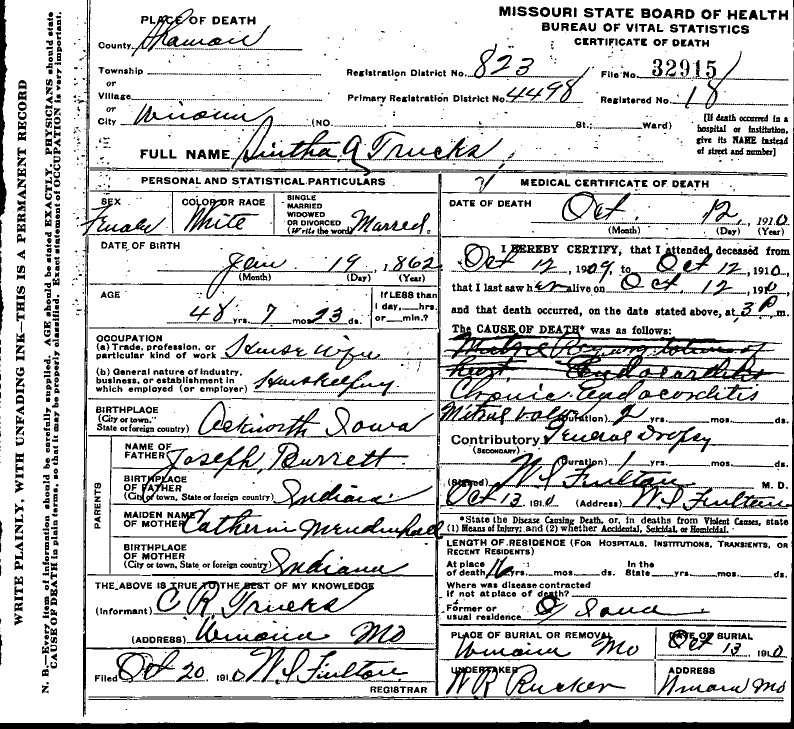 MISSOURI STATE BOARD OF HEALTH
BUREAU OF VITAL STATISTICS
CERTIFICATE OF DEATH
PLACE OF DEATH
County Shannon
Township
or
Village
or
City Winona (NO. St.; Ward)
Registration District No. 823 File No. 32915
Primary Registration District No. 4498 Registered No. 18
[If death occurred in a
hospital or institution,
give its NAME instead
of street and number]
FULL NAME Sintha A Trucks
PERSONAL AND STATISTICAL PARTICULARS
SEX
Female
COLOR OR RACE
White
SINGLE
MARRIED
WIDOWED
OR DIVORCED
(Write the word) Married.
DATE OF BIRTH
Jan 19, 1862
(Month) (Day) (Year)
AGE
48 yrs. 7 mos. 23 ds.
If LESS than
1 day,___hrs.
or___min.?
OCCUPATION
(a) Trade, profession, or
particular kind of work House wife
(b) General nature of industry,
business, or establishment in
which employed (or employer) Houskeeping
BIRTHPLACE
(City or town,
State or foreign country) Ackworth Iowa
PARENTS
NAME OF
FATHER Joseph, Burrett.
BIRTHPLACE
OF FATHER
(City or town, State or foreign country) Indiana
MAIDEN NAME
OF MOTHER Catherin Mendenhall
BIRTHPLACE
OF MOTHER
(City or town, State or foreign country) Indiana
THE ABOVE IS TRUE TO THE BEST OF MY KNOWLEDGE
(Informant) C R Trucks
(ADDRESS) Winona Mo
Filed Oct 20 1910 W S Fiulton
REGISTRAR
MEDICAL CERTIFICATE OF DEATH
DATE OF DEATH
Oct. 12, 1910
(Month) (Day) (Year)
I HEREBY CERTIFY, that I attended deceased from
Oct 12, 1909, to Oct 12, 1910,
that I last saw her alive on Oct. 12, 1910
and that death occurred, on the date stated above, at 3 P m.
The CAUSE OF DEATH* was as follows:
heart. Endocarditis
Chronic Endocorditis
Mitral valve (Duration) 2 yrs. mos. ds.
Contributory General Dropsy
(SECONDARY)
(Duration) 1 yrs. mos. ds.
(Signed) W S Fiulton M. D.
Oct 13. 1910 (Address) W S Fiulton
*State the Disease Causing Death, or, in deaths from Violent Causes, state
(1) Means of Injury; and (2) whether Accidental, Suicidal, or Homicidal.
LENGTH OF RESIDENCE (FOR HOSPITALS, INSTITUTIONS, TRANSIENTS, OR
RECENT RESIDENTS)
At place
of death 16 yrs. mos. ds.
In the
State yrs. mos. ds.
Where was disease contracted
if not at place of death?
Former or
usual residence Iowa
PLACE OF BURIAL OR REMOVAL
Winona Mo
DATE OF BURIAL
Oct 13 1910
UNDERTAKER
W R Rucker
ADDRESS
Winona Mo
WRITE PLAINLY, WITH UNFADING INK—THIS IS A PERMANENT RECORD
N. B.—Every item of information should be carefully supplied. AGE should be stated EXACTLY. PHYSICIANS should state
CAUSE OF DEATH in plain terms, so that it may be properly classified. Exact statement of OCCUPATION is very important.